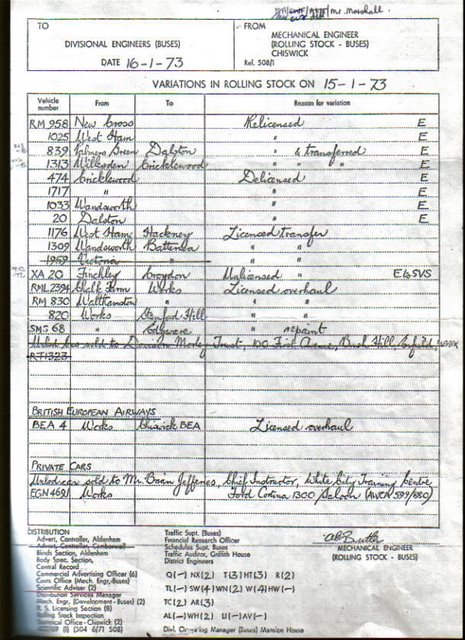 Mr. Marshall
TO
DIVISIONAL ENGINEERS (BUSES)
DATE 16-1-73
FROM
MECHANICAL ENGINEER
(ROLLING STOCK - BUSES)
CHISWICK
Ref. 508/1
VARIATIONS IN ROLLING STOCK ON 15-1-73
Vehicle number From To Reason for variation
RM 958 New Cross Relicensed E
1025 West Ham " E
839 Palmers Green Dalston " & transferred E
1313 Willesden Cricklewood " " " E
474 Cricklewood Delicensed E
1717 " " E
1033 Wandsworth " E
20 Dalston " E
1176 West Ham Hackney Licensed transfer
1309 Wandsworth Battersea " "
1959 Victoria " "
XA 20 Finchley Croydon Unlicensed " E to SVS
RML 2394 Chalk Farm Works Licensed overhaul
RM 830 Walthamstow " " "
820 Works Stamford Hill " "
SMS 68 " Edgware " repaint
Trust, 100 Fish Avenue, Bush Hill, Enfield,
RT1323
BRITISH EUROPEAN AIRWAYS
BEA 4 Works Chiswick BEA Licensed overhaul
PRIVATE CARS
sold to Mr. Brian Jefferies, Chief Instructor, White City Training Centre
EGN 469J Works Ford Cortina 1300 Saloon
MECHANICAL ENGINEER
(ROLLING STOCK - BUSES)
DISTRIBUTION
Advert, Controller, Aldenham
Advert, Controller, Camberwell
Blinds Section, Aldenham
Body Spec, Section,
Central Record
Commercial Advertising Officer (6)
Costs Office (Mech. Engr, Buses)
Scientific Adviser (2)
Distribution Services Manager
Mech. Engr. (Development - Buses) (2)
R. S. Licensing Section (8)
Rolling Stock Inspection
Technical Office - Chiswick (2)
(1) (504 6/71 508)
Traffic Supt. (Buses)
Financial Research Officer
Schedules Supt. Buses
Traffic Auditor, Griffith House
District Engineers
Q(-) NX(2) T(3) HT(3) R(2)
TL(-) SW(4) WN(2) W(4) HW(-)
TC(2) AR(3)
AL(-) WH(2) U(-) AV(-)
Divl. Operating Manager (Buses) Mansion House